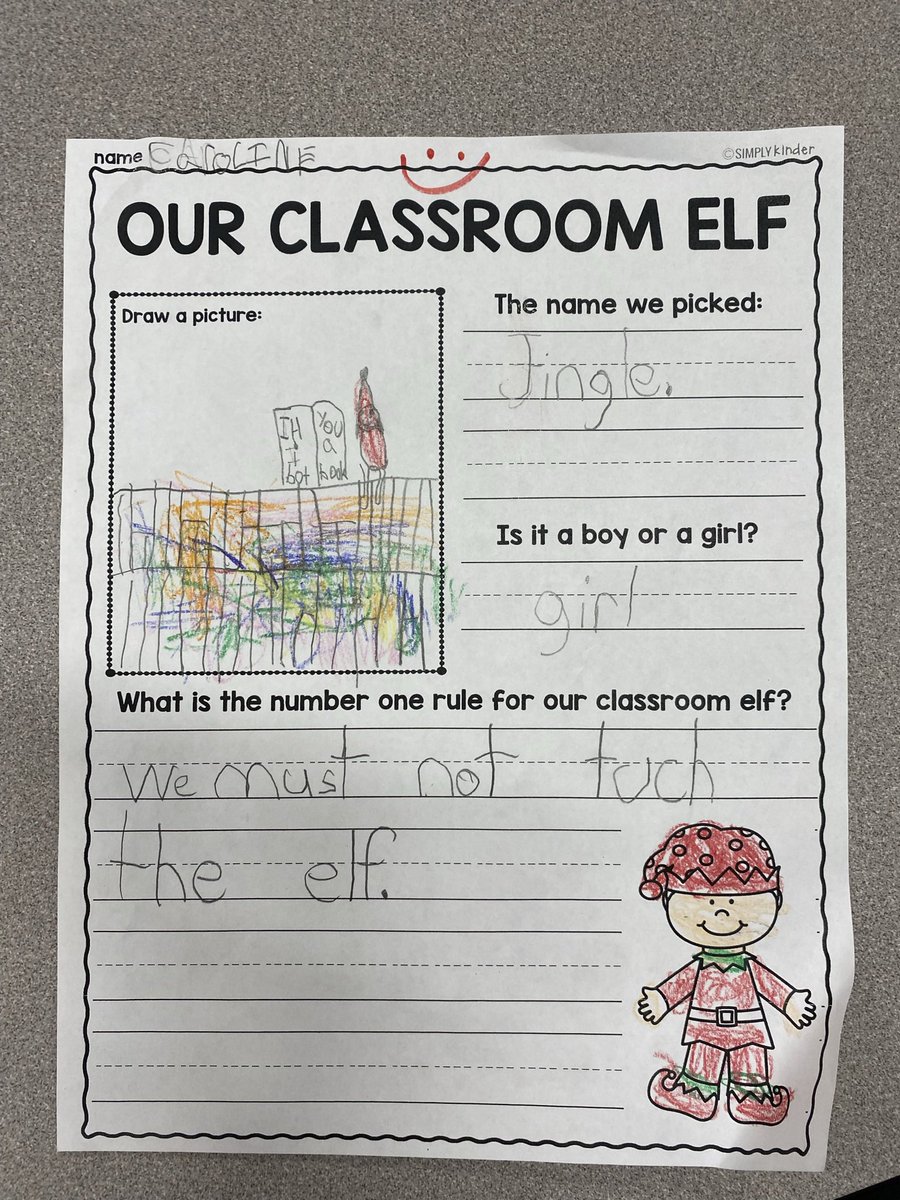 name CAROLINE
©SIMPLYkinder
OUR CLASSROOM ELF
Draw a picture:
YOU
a
I
bot
book
The name we picked:
Jingle.
Is it a boy or a girl?
girl
What is the number one rule for our classroom elf?
we must not tuch
the elf.